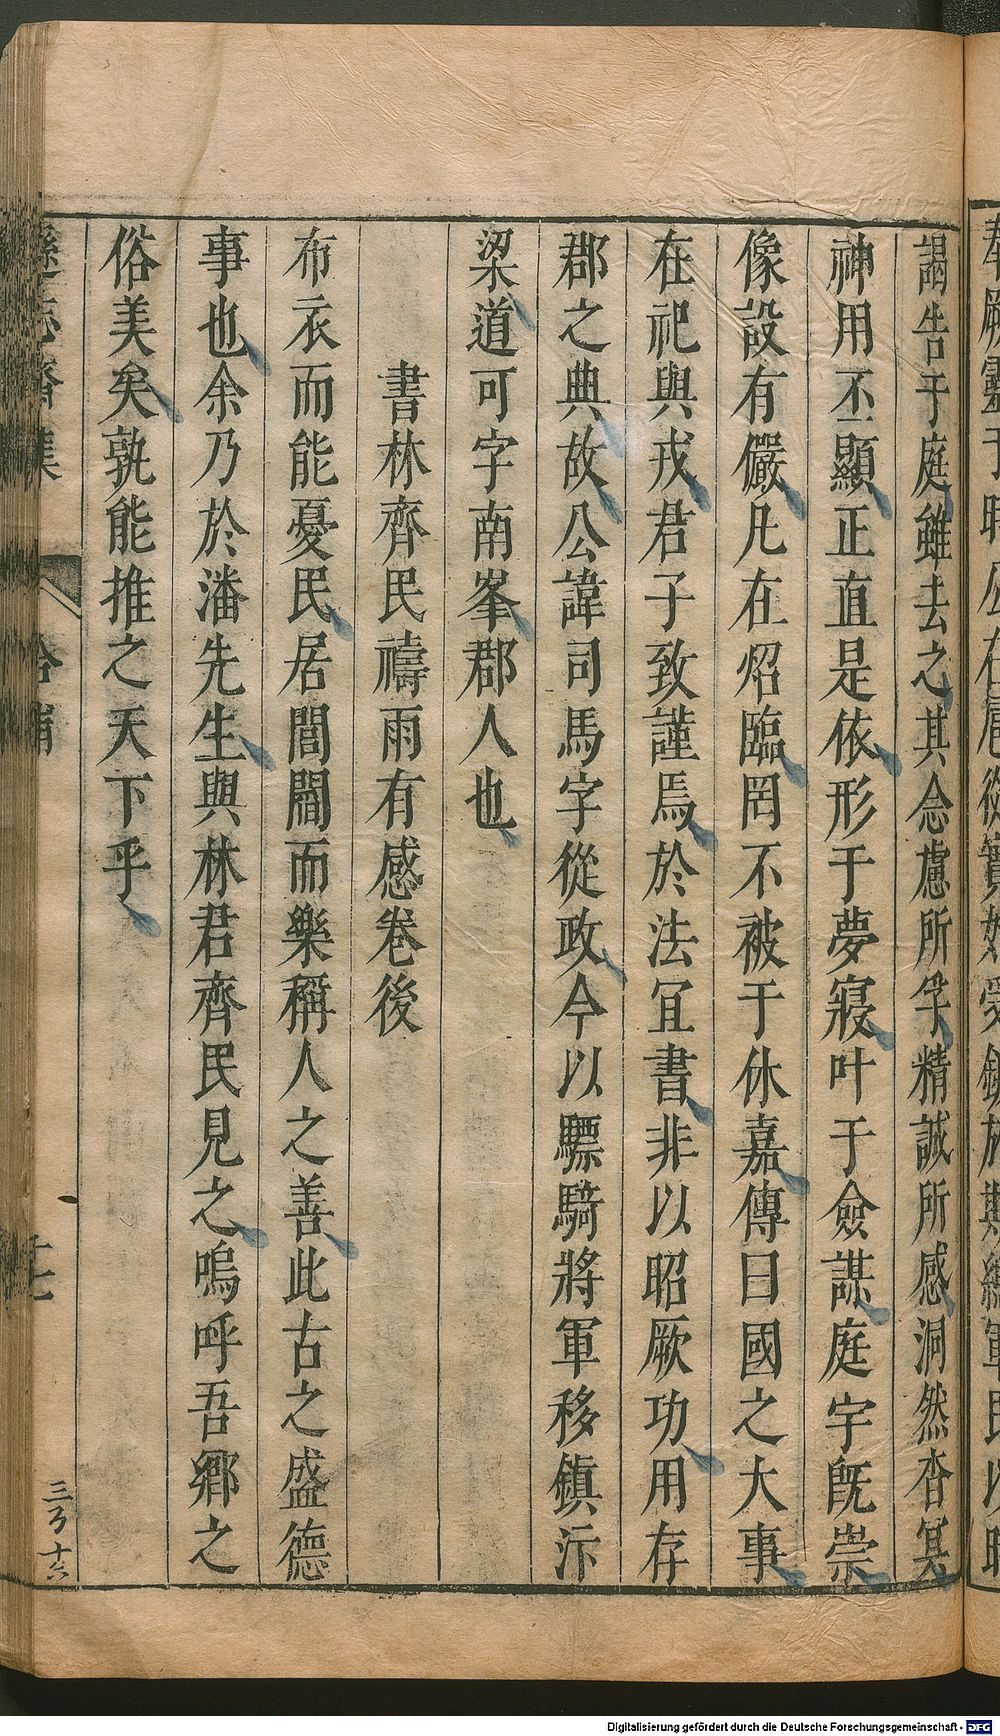 謁告于庭雖去之其念慮所孚精誠所感洞然杳冥
神用丕顯正直是依形于夢寢叶于僉謀庭宇旣崇
像設有儼凡在炤臨罔不被于休嘉傳曰國之大事
在祀與戎君子致謹焉於法宜書非以昭厥功用存
郡之典故公諱司馬字從政今以驃騎將軍移鎮汴
梁道可字南峯郡人也
書林齊民禱雨有感卷後
布衣而能憂民居閭閻而樂稱人之善此古之盛德
事也余乃於潘先生與林君齊民見之嗚呼吾鄉之
俗美矣孰能推之天下乎
遜志齋集
拾補
十七
三丂十六